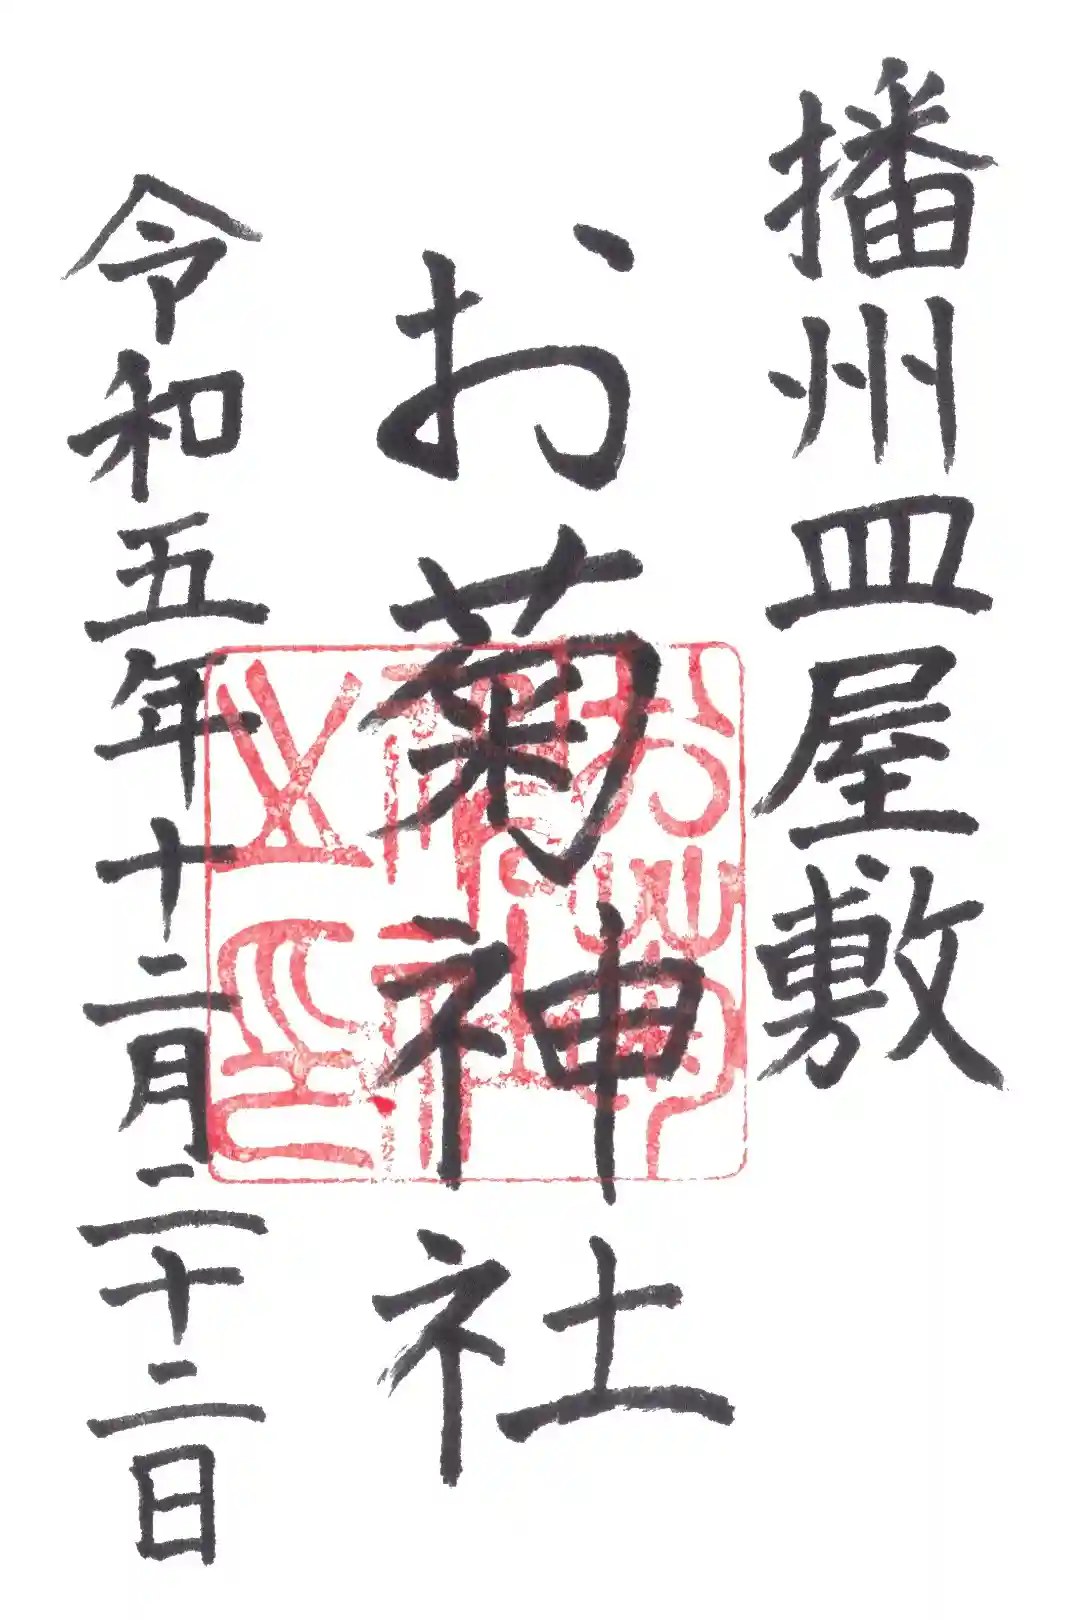 播州皿屋敷
お菊神社
令和五年十二月二十二日
お菊神社之印